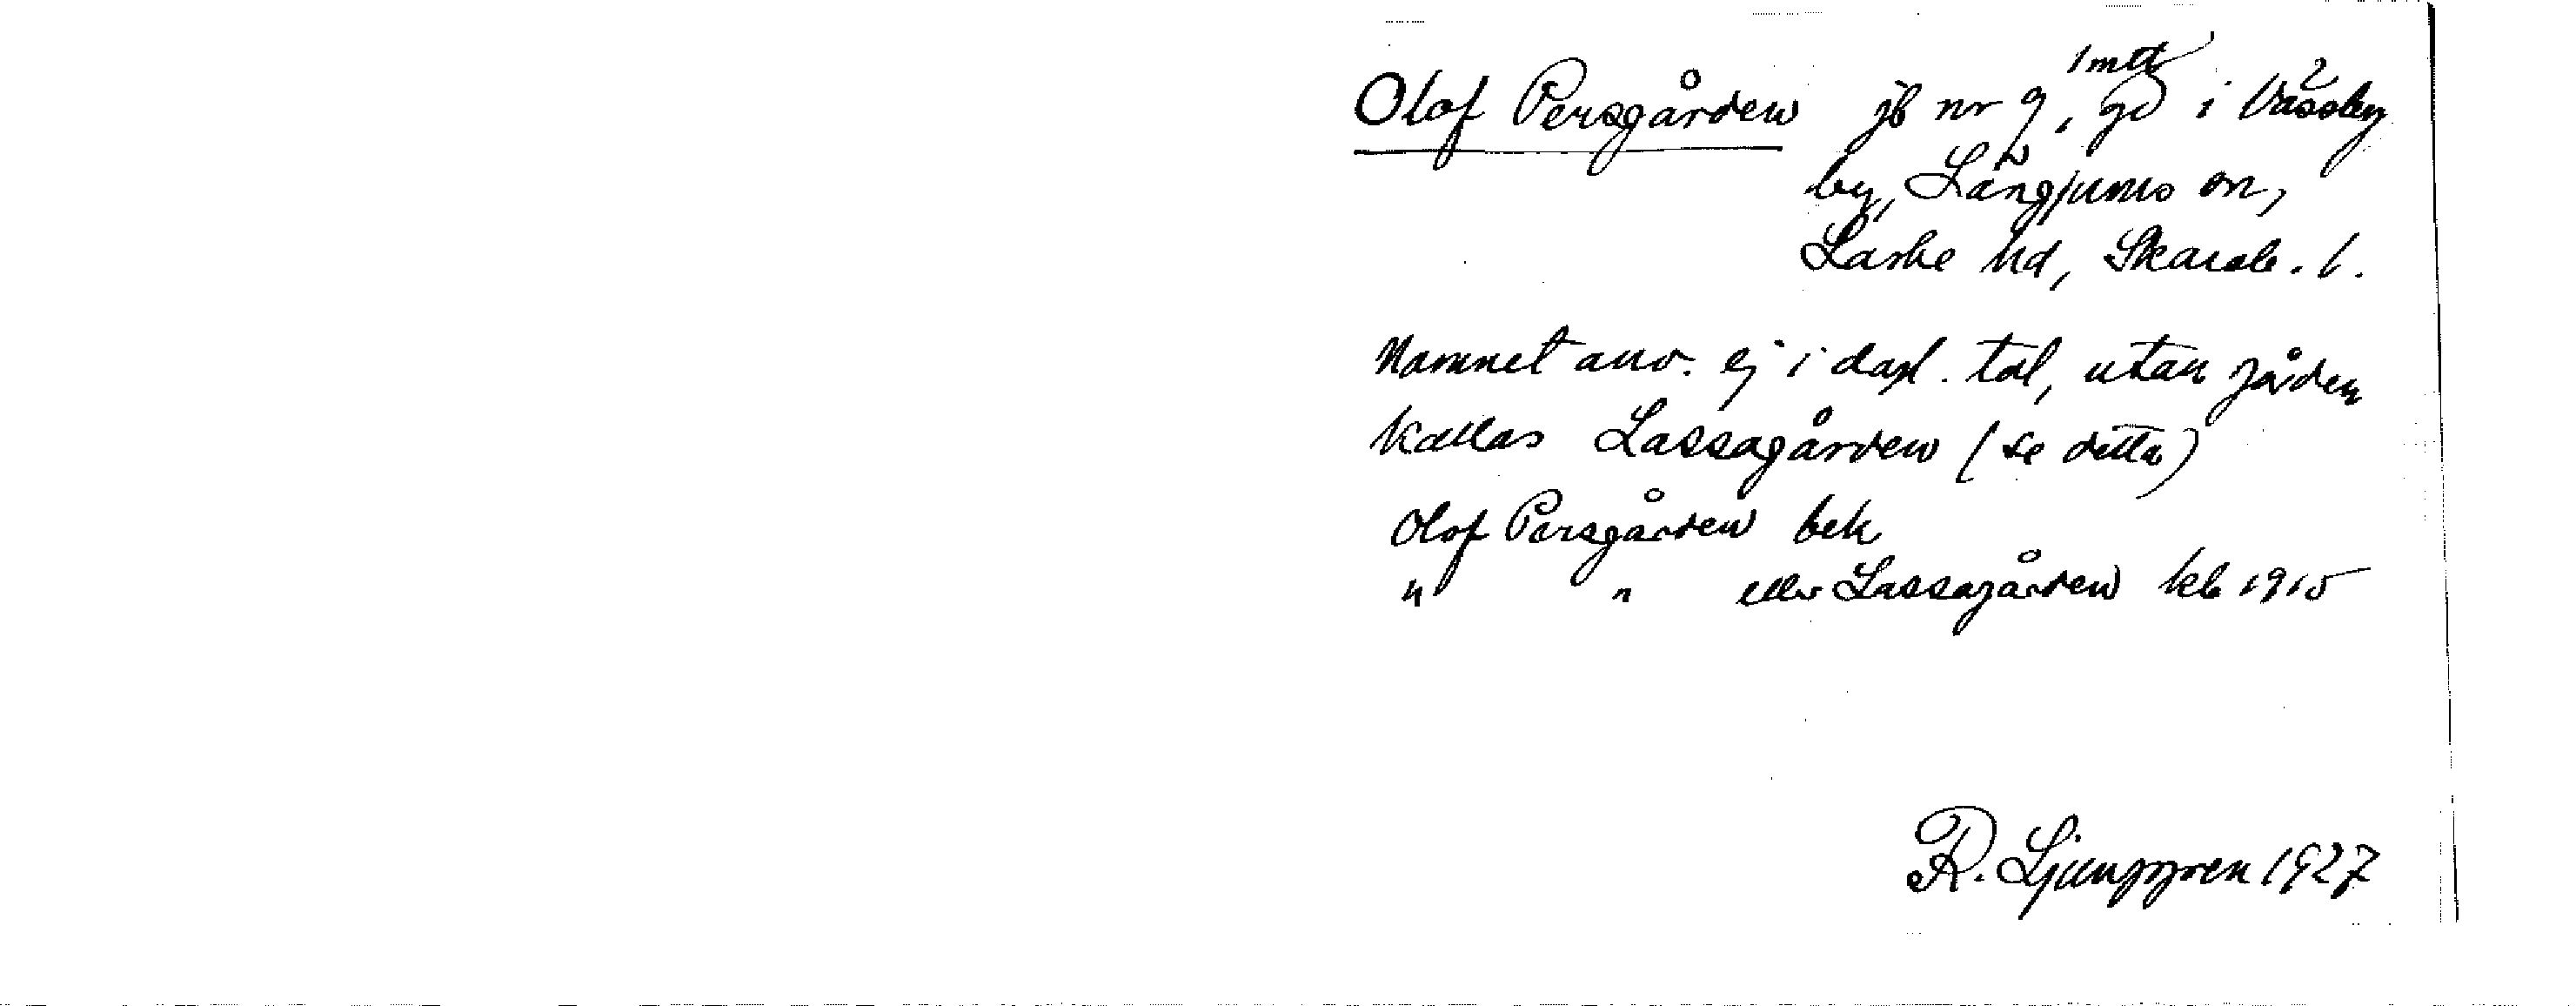 1 mtl
Olof Persgården jb nr 9, gd i Vässby
by, Långjums sn,
Laske hd, Skarab. l.
Namnet anv. ej i dagl. tal, utan gården
kallas Lassagården (se detta)
Olof Persgården bek
" " eller Lassagården kb 1915
R. Ljunggren 1927